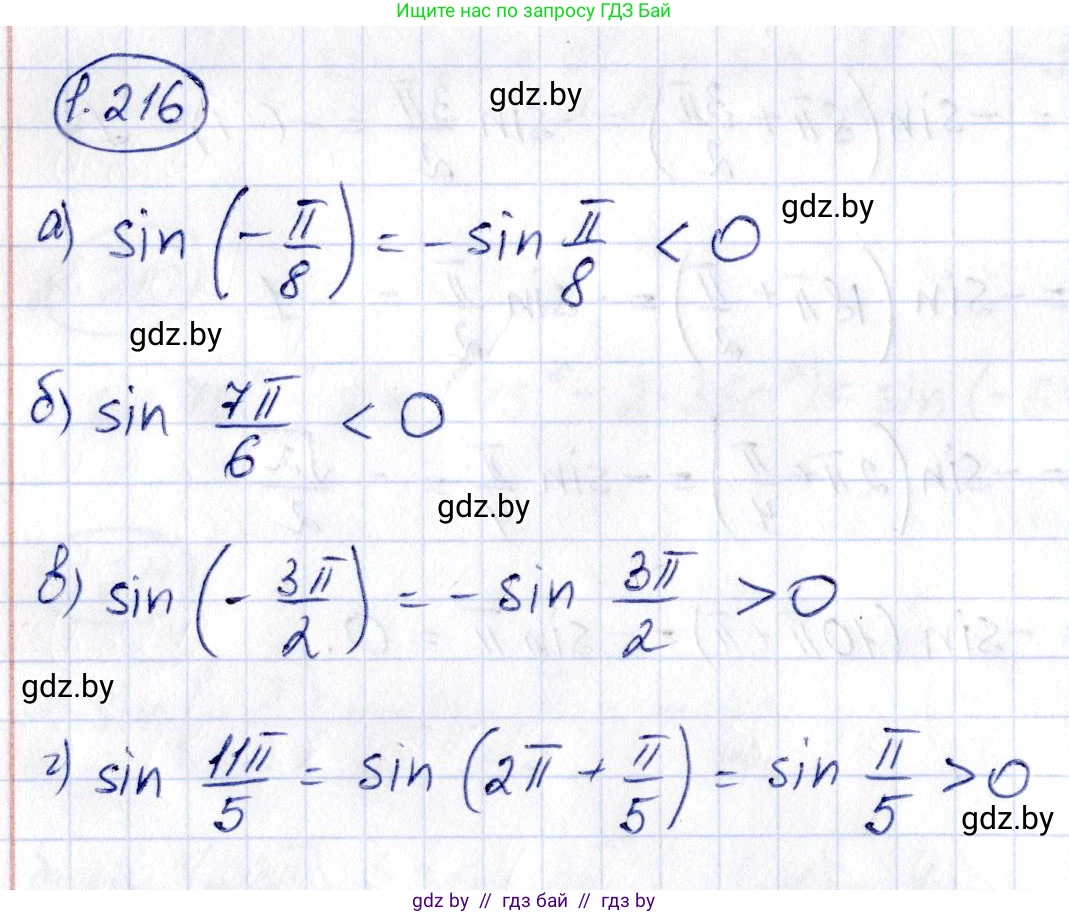 Ищите нас по запросу ГДЗ Бай
1.216
gdz.by
а) sin (-π/8) = -sin π/8 < 0
gdz.by
gdz.by
б) sin 7π/6 < 0
gdz.by
в) sin (-3π/2) = -sin 3π/2 > 0
gdz.by
г) sin 11π/5 = sin (2π + π/5) = sin π/5 > 0
gdz.by
gdz.by // гдз бай // gdz.by